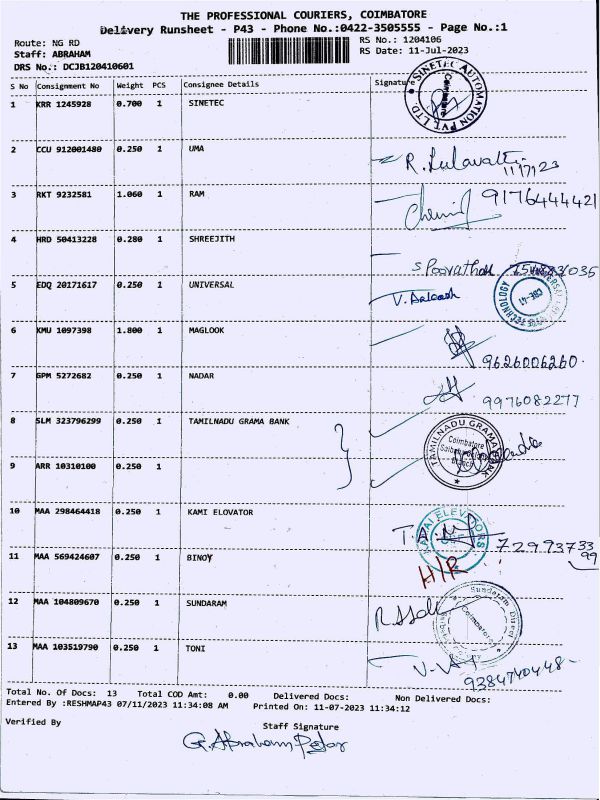 THE PROFESSIONAL COURIERS, COIMBATORE
Delivery Runsheet - P43 - Phone No.:0422-3505555 - Page No.:1
Route: NG RD
RS No.: 1204106
Staff: ABRAHAM
RS Date: 11-Jul-2023
DRS No.: DCJB120410601
S No Consignment No Weight PCS Consignee Details Signature
1 KRR 1245928 0.700 1 SINETEC
SINETEC AUTOMATION PVT. LTD.
Coimbatore
2 CCU 912001480 0.250 1 UMA
R. 11/7/23
3 RKT 9232581 1.060 1 RAM
9176444421
4 HRD 50413228 0.280 1 SHREEJITH
5 EDQ 20171617 0.250 1 UNIVERSAL
V. TECHNOLOGY CBE-41
6 KMU 1097398 1.800 1 MAGLOOK
9626006260.
7 GPM 5272682 0.250 1 NADAR
9976082277
8 SLM 323796299 0.250 1 TAMILNADU GRAMA BANK
TAMILNADU GRAMA BANK
Coimbatore
Branch
9 ARR 10310100 0.250 1
10 MAA 298464418 0.250 1 KAMI ELOVATOR
ELEVATORS
7299373399
11 MAA 569424607 0.250 1 BINOY
H/R
12 MAA 104809670 0.250 1 SUNDARAM
Sundaram Direct
Coimbatore
13 MAA 103519790 0.250 1 TONI
9384740448-
Total No. Of Docs: 13 Total COD Amt: 0.00 Delivered Docs: Non Delivered Docs:
Entered By :RESHMAP43 07/11/2023 11:34:08 AM Printed On: 11-07-2023 11:34:12
Verified By Staff Signature
G. Abraham